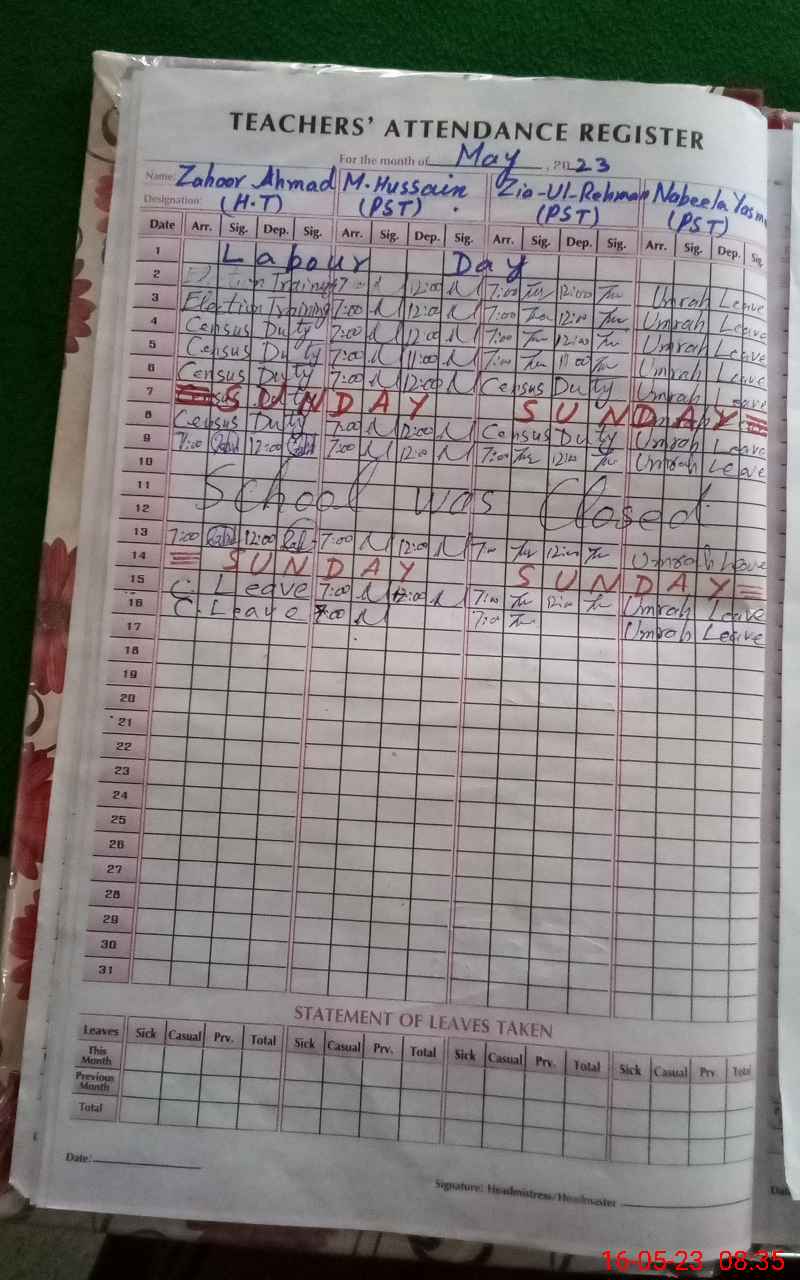 TEACHERS' ATTENDANCE REGISTER
For the month of May, 2023
Name: Zahoor Ahmad M. Hussain Zia-Ul-Rehman Nabeela Yasm
Designation: (H.T) (PST) (PST) (PST)
Date Arr. Sig. Dep. Sig. Arr. Sig. Dep. Sig. Arr. Sig. Dep. Sig. Arr. Sig. Dep. Sig.
1 Labour Day
2 Training 7:00 12:00 7:00 12:00 Umrah Leave
3 Election Training 7:00 12:00 7:00 12:00 Umrah Leave
4 Census Duty 7:00 12:00 7:00 12:00 Umrah Leave
5 Census Duty 7:00 11:00 7:00 11:00 Umrah Leave
6 Census Duty 7:00 12:00 Census Duty Umrah Leave
7 SUNDAY SUNDAY
8 Census Duty 7:00 12:00 Census Duty Umrah Leave
9 7:00 12:00 7:00 12:00 7:00 12:00 Umrah Leave
10
11 School was Closed
12
13 7:00 12:00 7:00 12:00 7:00 12:00 Umrah Leave
14 SUNDAY SUNDAY
15 C. Leave 7:00 12:00 7:00 12:00 Umrah Leave
16 C. Leave 7:00 7:00 Umrah Leave
17
18
19
20
21
22
23
24
25
26
27
28
29
30
31
STATEMENT OF LEAVES TAKEN
Leaves Sick Casual Prv. Total Sick Casual Prv. Total Sick Casual Prv. Total Sick Casual Prv. Total
This Month
Previous Month
Total
Date:
Signature: Headmistress/Headmaster
16-05-23 08:35